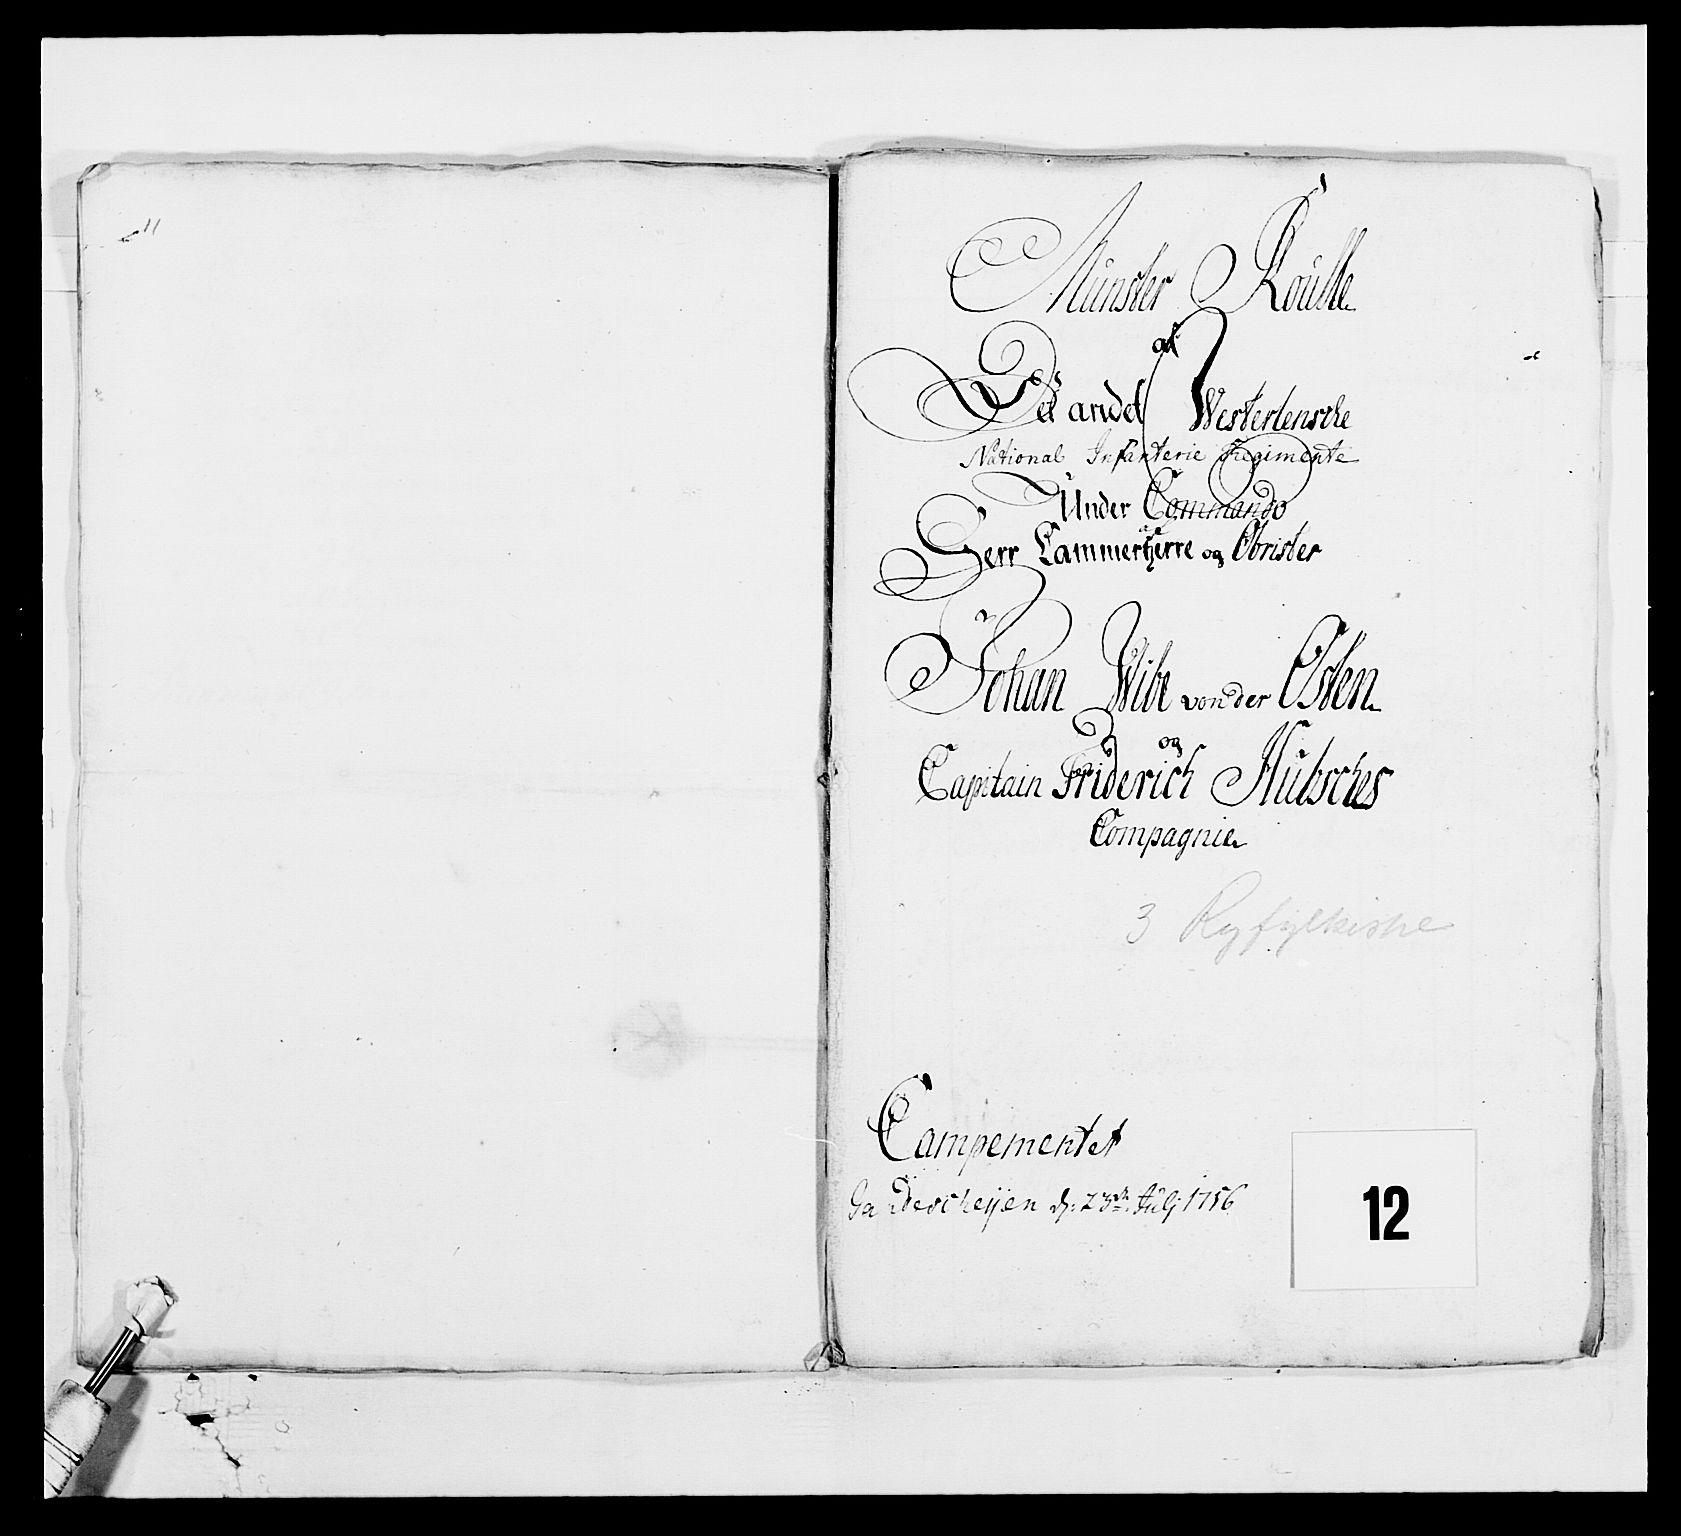 Münster Roulle
af
Det andet Westerlensche
National Infanterie Regimente
Under Commando
af
Herr Cammerherre og Obrister
Johan Wibe von der Osten
og
Capitain Friderich Hübsches
Compagnie
3 Ryfylkiske
Campementet
Gandescheijen d: 23de Julj 1756
12